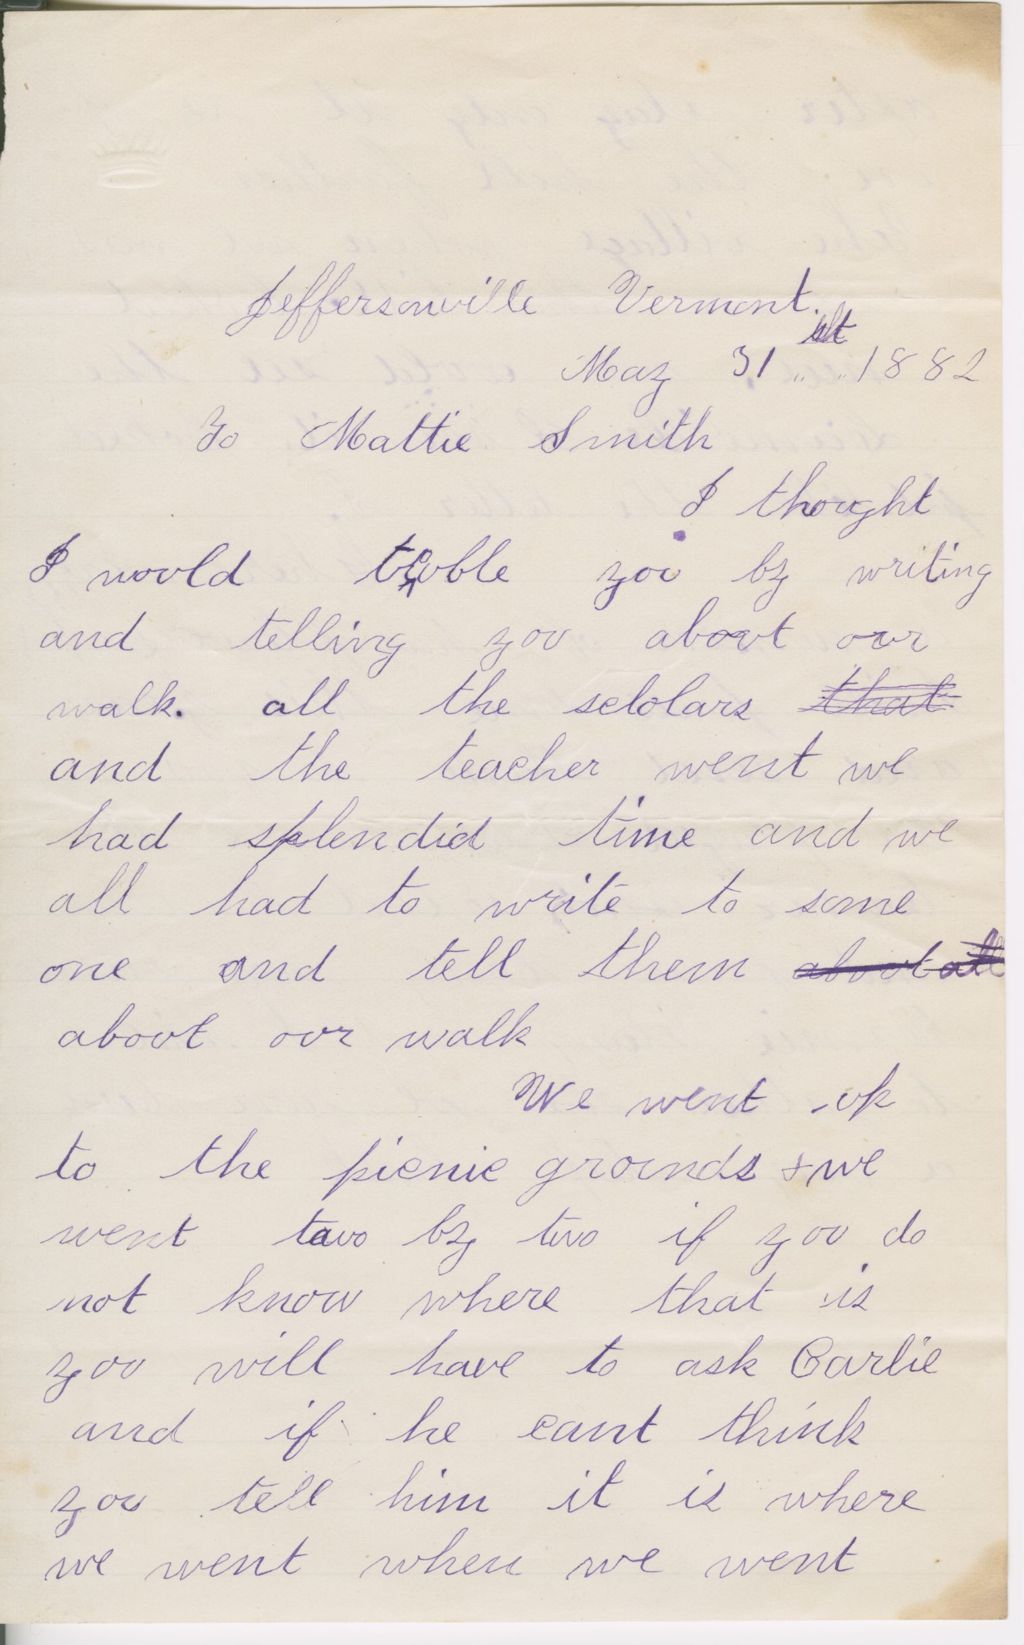 Jeffersonville Vermont.
May 31 " " 1882
To Mattie Smith
I thought
I would trouble you by writing
and telling you about our
walk. all the scholars that
and the teacher went we
had splendid time and we
all had to write to some
one and tell them about all
about our walk
We went up
to the picnic grounds & we
went two by two if you do
not know where that is
you will have to ask Carlie
and if he cant think
you tell him it is where
we went when we went